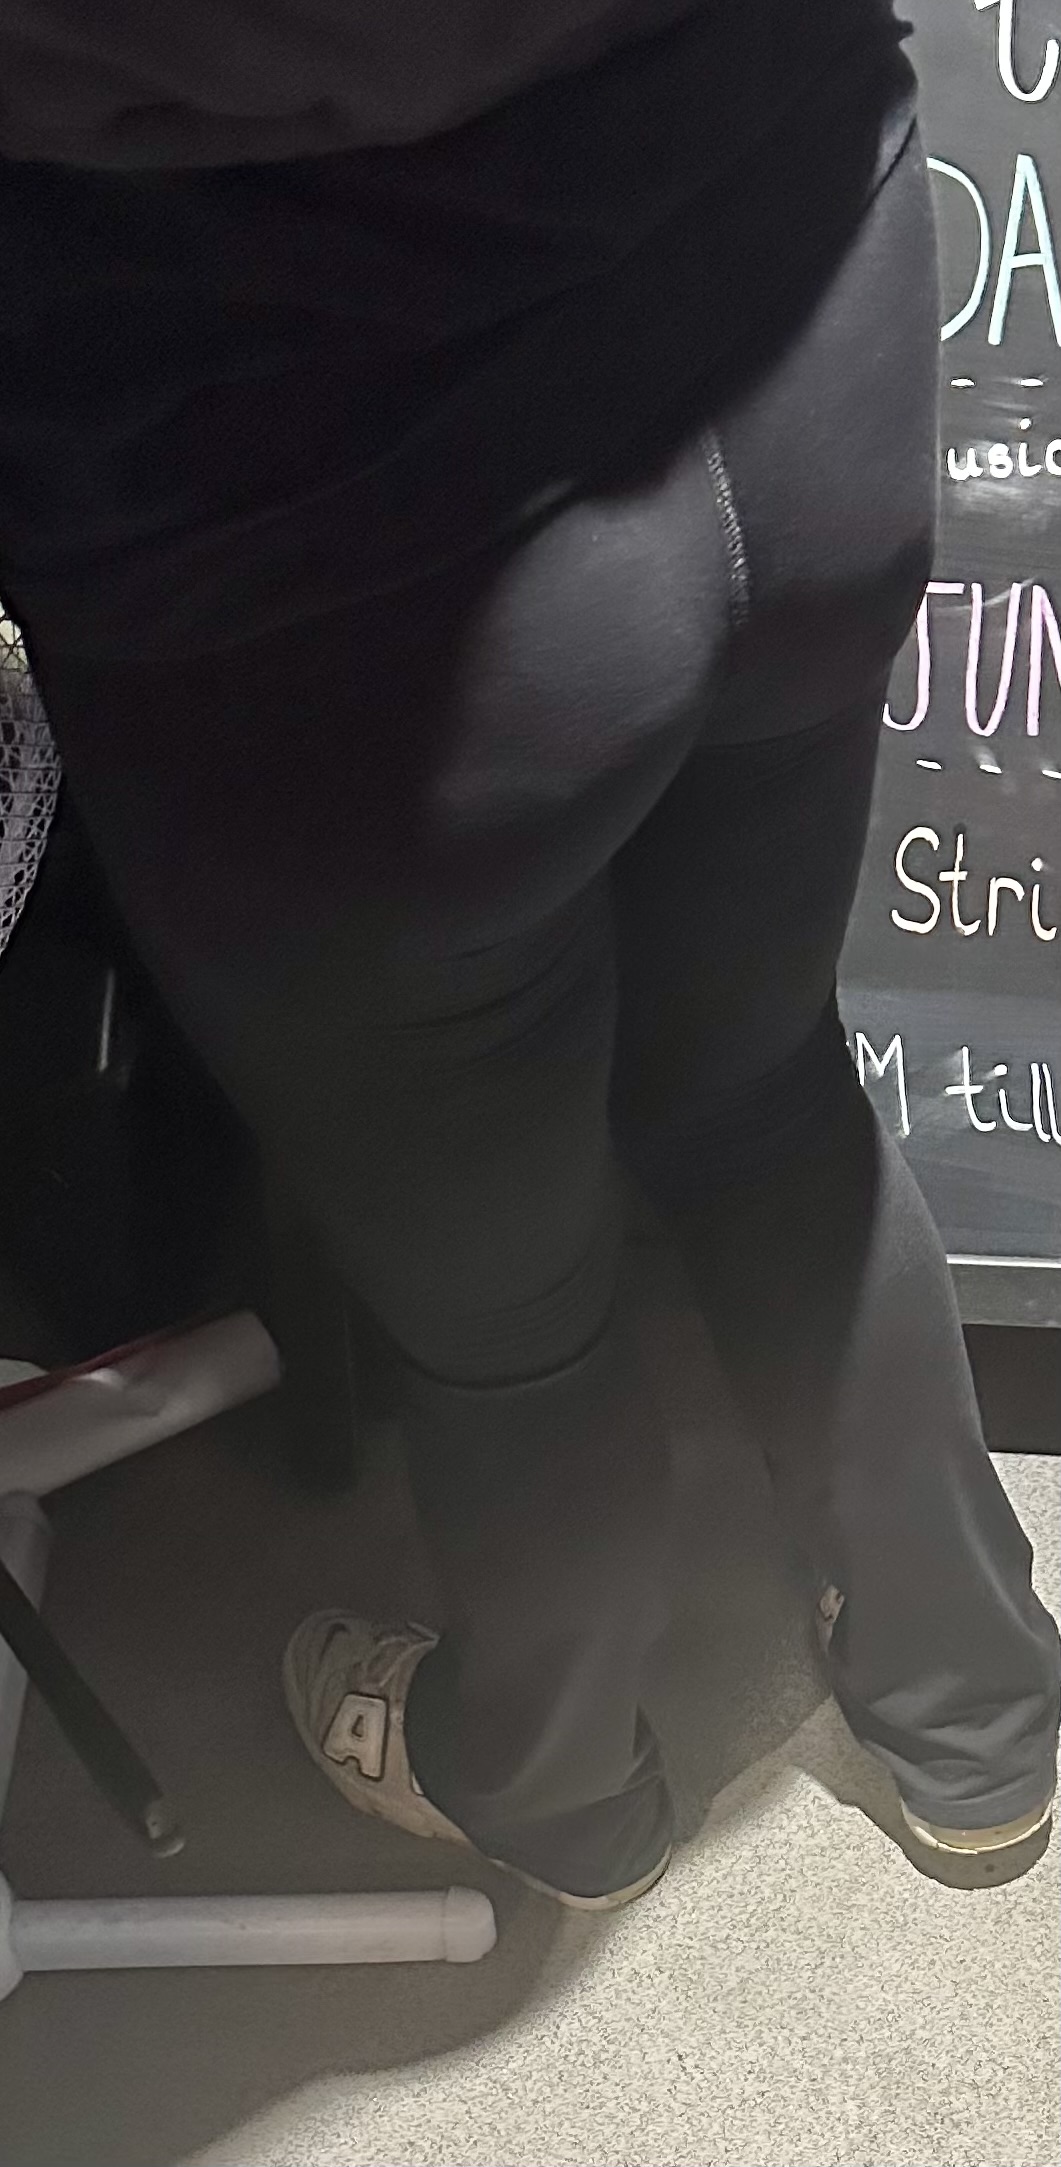 t
DA
usic
JUN
Stri
M till
A